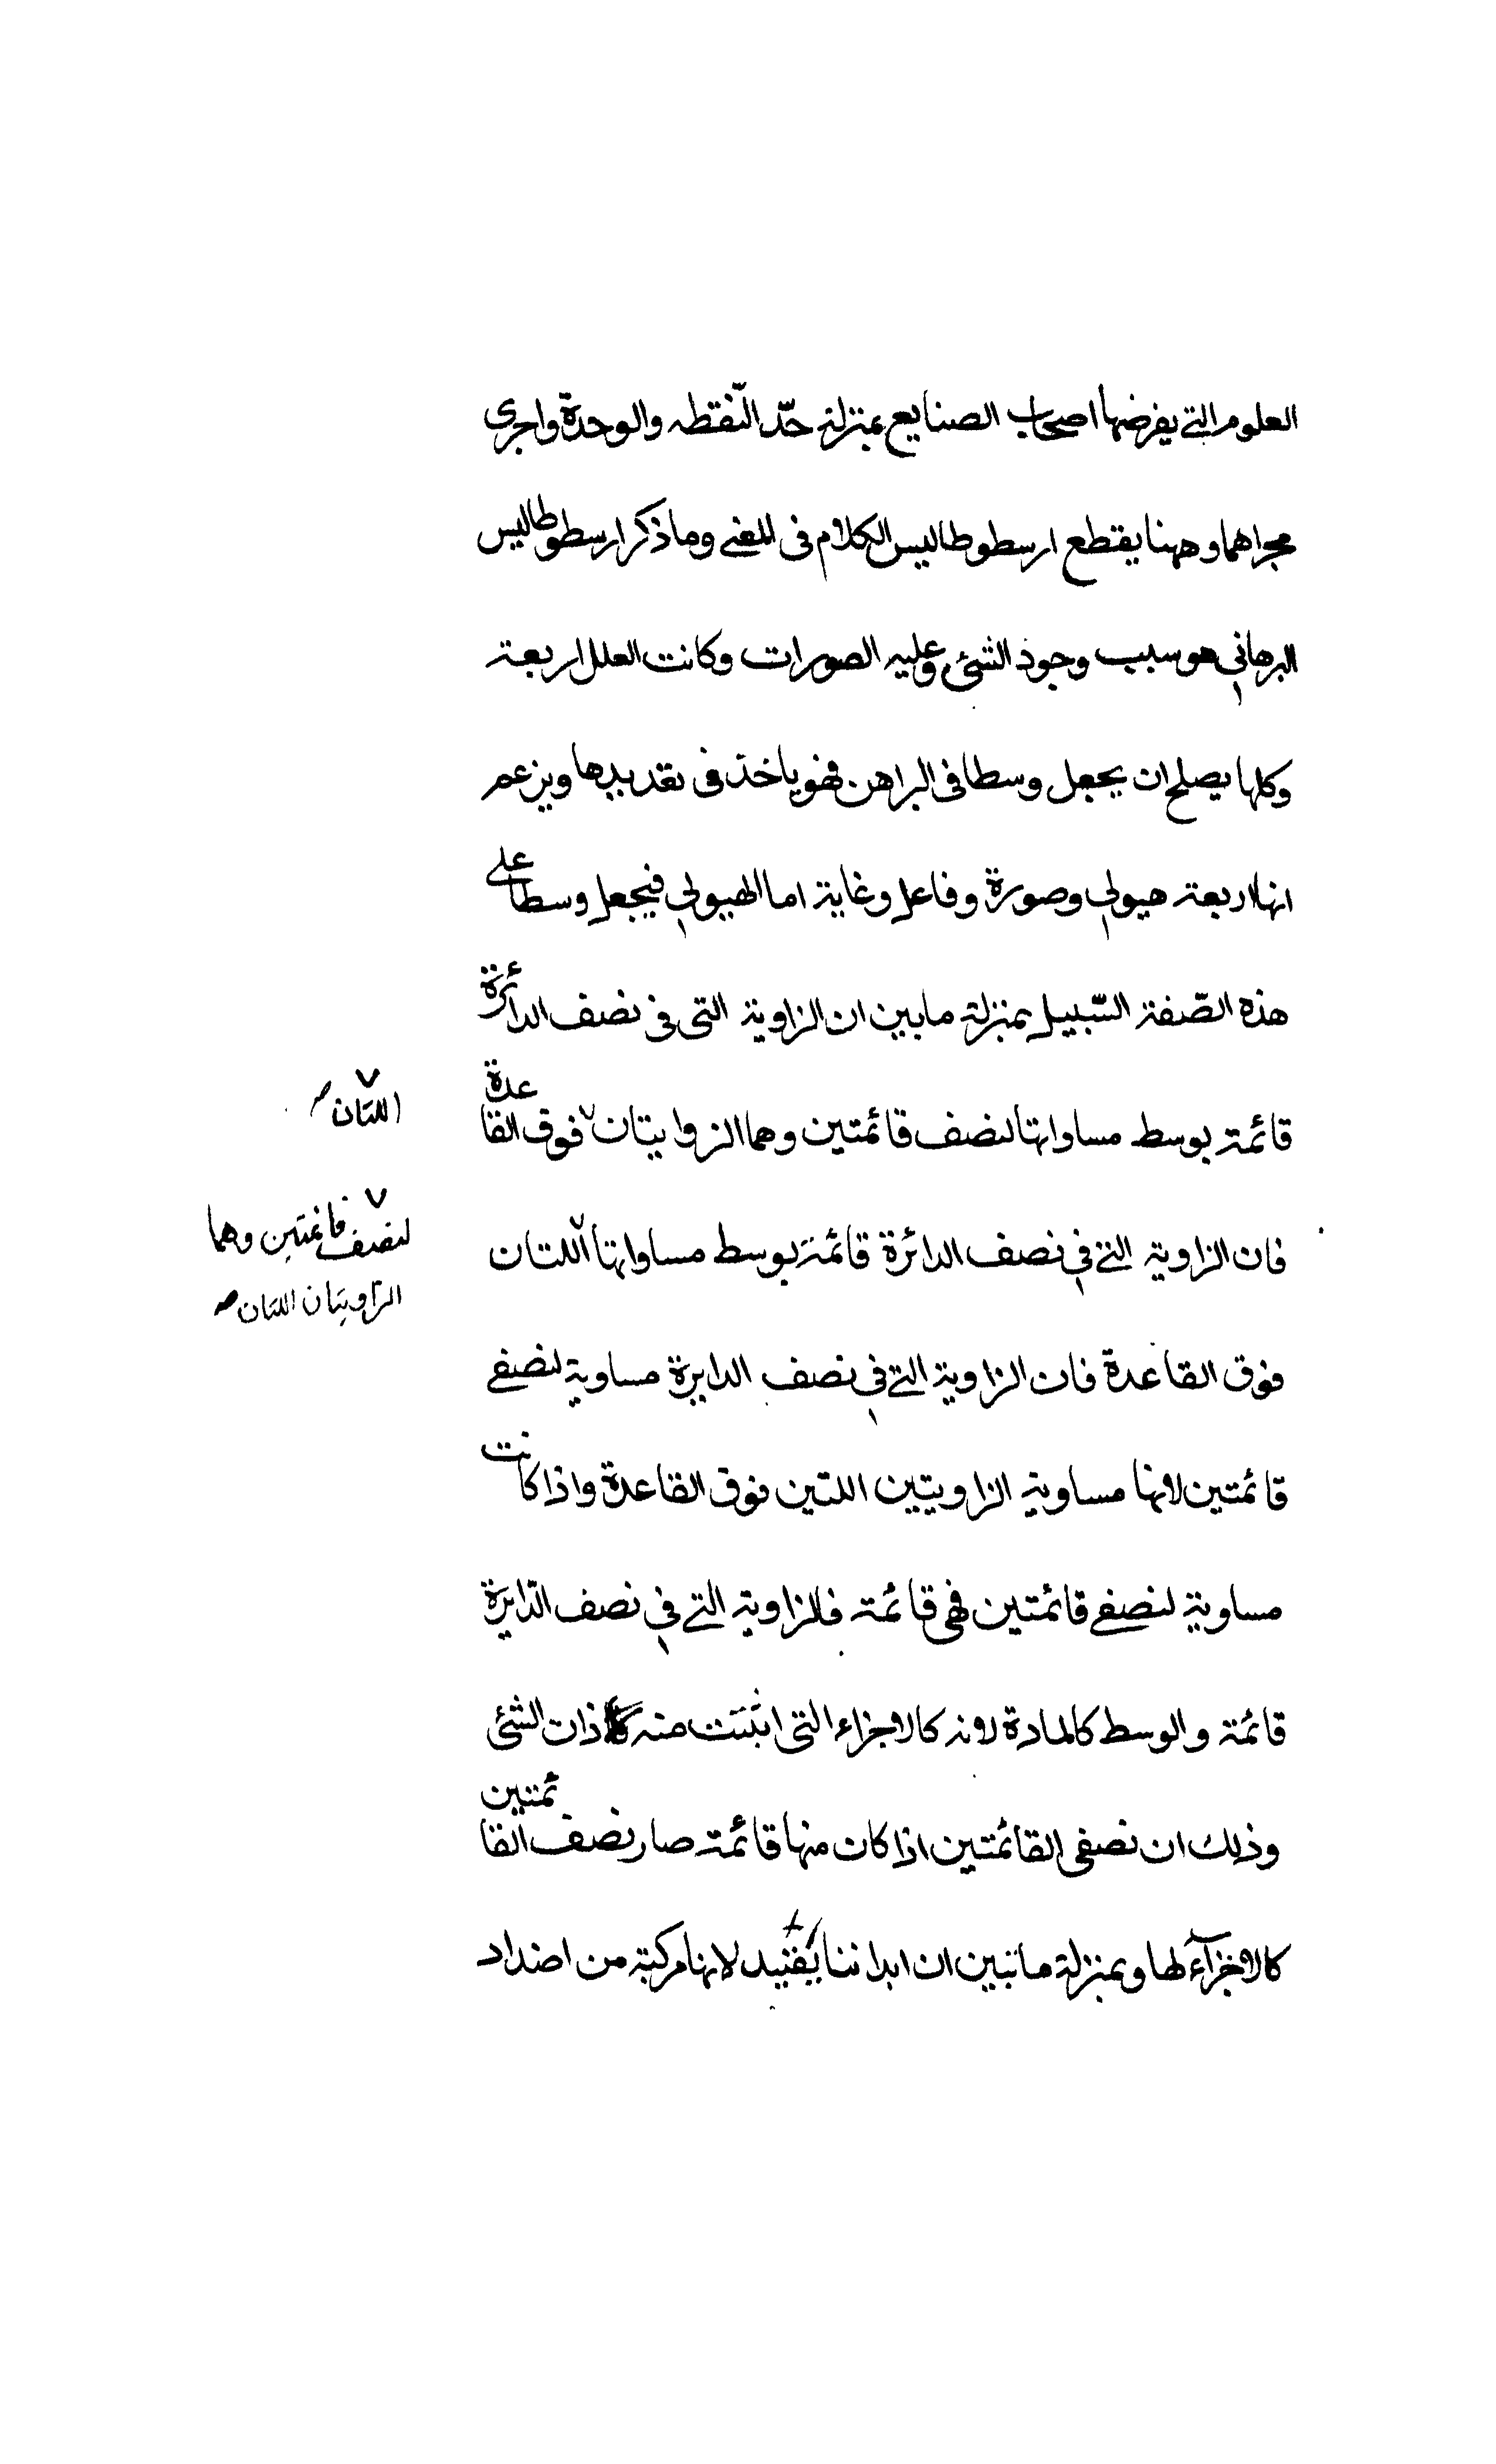 العلوم التي يفرضها اصحاب الصنايع بمنزلة حدّ النّقطه والوحدة واجرى
مجراهما وههنا يقطع ارسطوطاليس الكلام فى المعنى وما ذكر ارسطوطاليس
البرهاني هو سبب وجود الشئ وعليه الصورات وكانت العلل اربعة
وكلها يصلح ان يجعل وسطا فى البراهن فهو ياخذ فى تعديدها ويزعم
انها اربعة هيولي وصورة وفاعل وغاية اما الهيولي فيجعل وسطا على
هذه الصّفة السّبيل بمنزلة ما بين ان الزاوية التى فى نصف الدائرة
قائمة بوسط مساواتها لنصف قائمتين وهما الزوايتان فوق القاعدة
اللتان صـ
فان الزاوية التي في نصف الدائرة قائمة بوسط مساواتها اللتان
لنصف قائمتين وهما
الزاويتان اللتان صـ
فوق القاعدة فان الزاوية التي في نصف الدايرة مساوية لنصفي
قائمتين لانها مساوية الزاويتين اللتين فوق القاعدة واذا كانت
مساوية لنصفي قائمتين فهى قائمة فالزاوية التي في نصف الدّايرة
قائمة والوسط كالمادة لانه كالاجزاء التى انبتت منه ذات الشئ
وذلك ان نصفى القائمتين اذا كان منها قائمة صار نصف القائمتين
كالاجزآء لها وبمنزلة ما تبين ان ابداننا لانها مركبة من اضداد